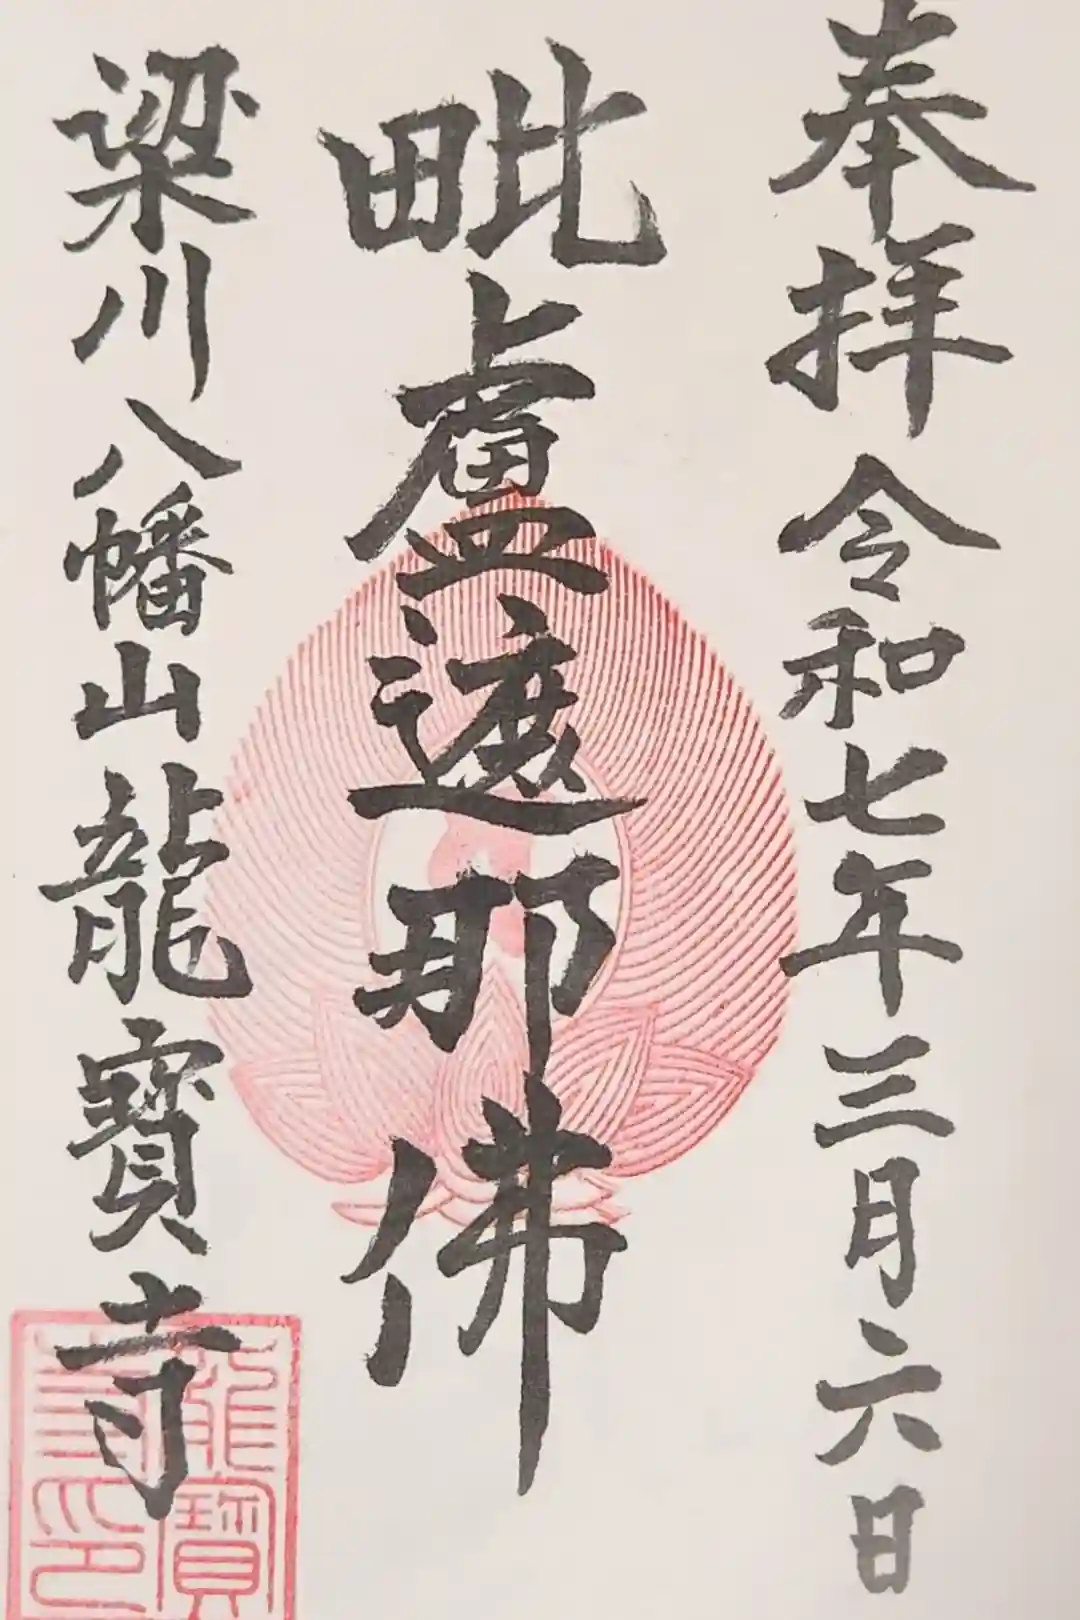 奉拝 令和七年三月六日
毗盧遮那佛
梁川八幡山龍寶寺
龍寶寺印